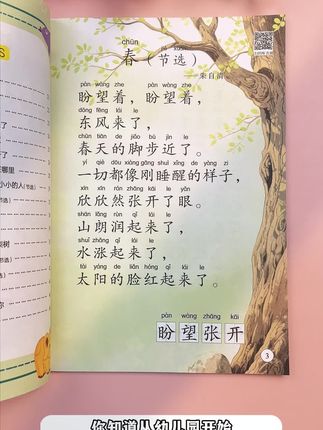 chūn
春（节选）
朱自清
pàn wàng zhe pàn wàng zhe
盼望着，盼望着，
dōng fēng lái le
东风来了，
chūn tiān de jiǎo bù jìn le
春天的脚步近了。
yí qiè dōu xiàng gāng shuì xǐng de yàng zi
一切都像刚睡醒的样子，
xīn xīn rán zhāng kāi le yǎn
欣欣然张开了眼。
shān lǎng rùn qǐ lái le
山朗润起来了，
shuǐ zhǎng qǐ lái le
水涨起来了，
tài yáng de liǎn hóng qǐ lái le
太阳的脸红起来了。
pàn wàng zhāng kāi
盼望张开
3
你知道从幼儿园开始